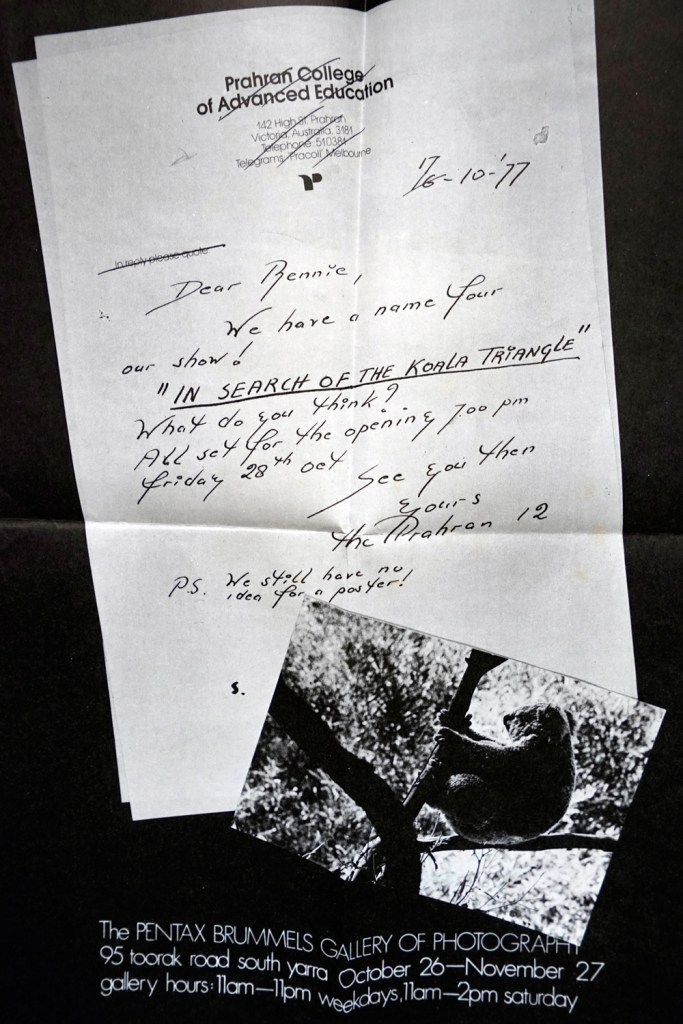 Prahran College
of Advanced Education
142 High St. Prahran
Victoria, Australia, 3181
Telephone: 510381
Telegrams: 'Pracoll' Melbourne
-10-'77
In reply please quote
Dear Rennie,
We have a name for
our show!
"IN SEARCH OF THE KOALA TRIANGLE"
What do you think?
All set for the opening 7.00 pm
friday 28th oct
See you then
yours
the Prahran 12
P.S. We still have no
idea for a poster!
s.
The PENTAX BRUMMELS GALLERY OF PHOTOGRAPHY
95 toorak road south yarra October 26—November 27
gallery hours: 11am—11pm weekdays, 11am—2pm saturday